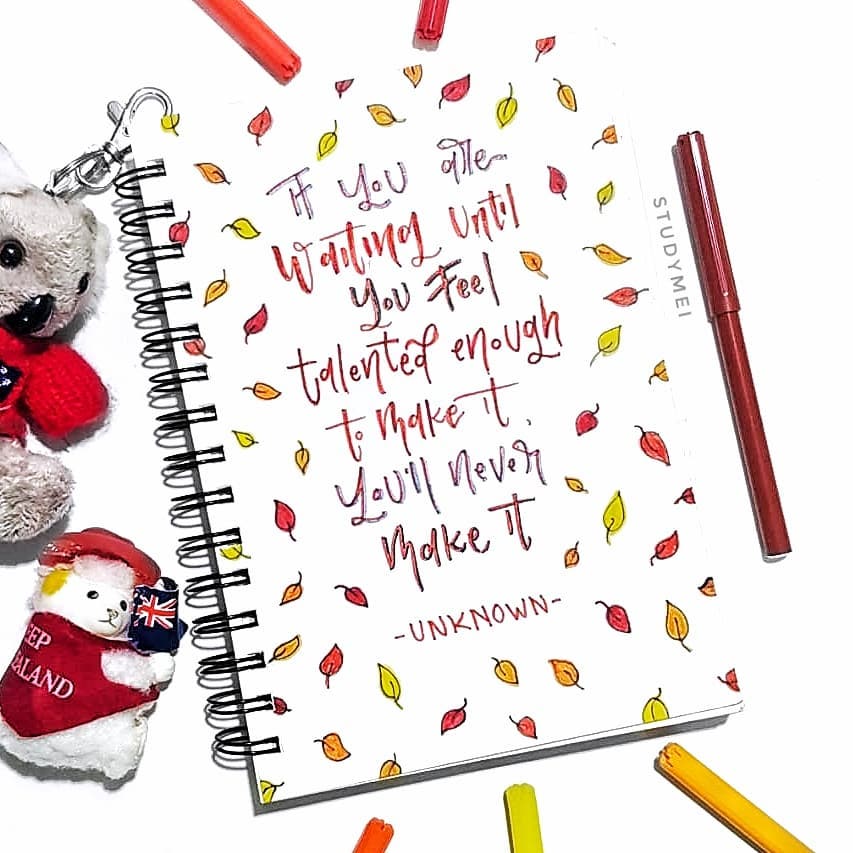 If you are
Waiting until
You Feel
talented enough
to make it,
You'll never
make it
-UNKNOWN-
STUDYMEI
EEP
EALAND